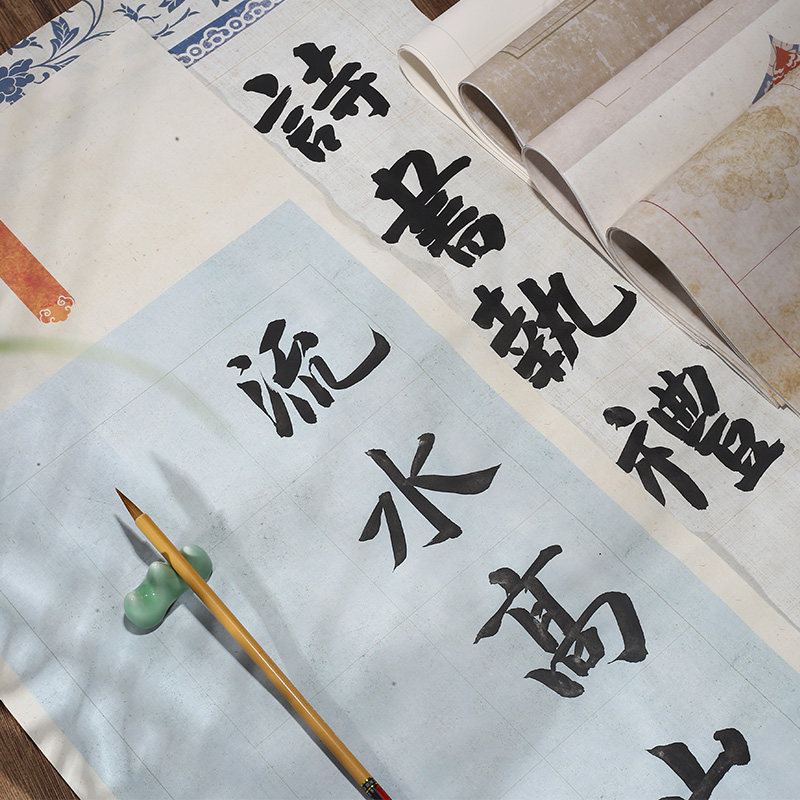 詩書執禮
流水高山